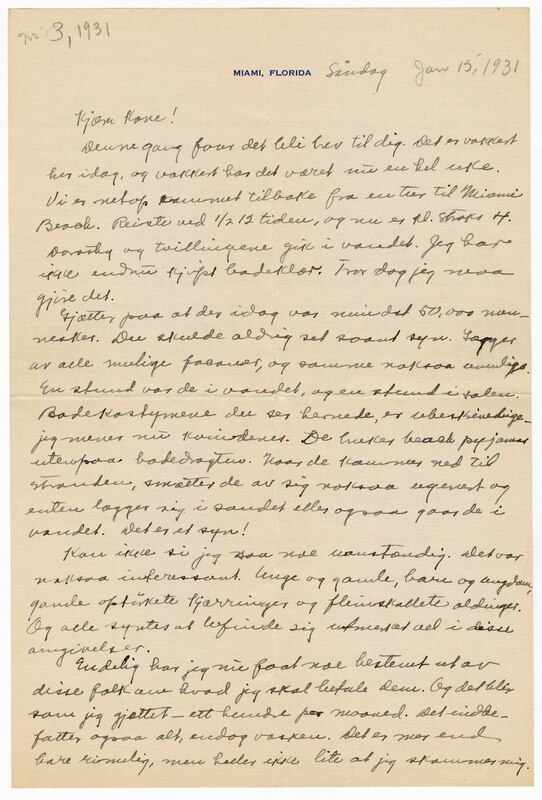 no 3, 1931
MIAMI, FLORIDA Söndag Jan 15, 1931
Kjære Kone!
Denne gang faar det bli brev til dig. Det er vakkert
her idag, og vakkert har det været nu en hel uke.
Vi er netop kommet tilbake fra en tur til Miami
Beach. Reiste ved 1/2 12 tiden, og nu er kl. straks 4.
Dorothy og tvillingene gik i vandet. Jeg har
ikke endnu kjöpt badeklær. Tror dog jeg maa
gjöre det.
Gjætter paa at der idag var mindst 50,000 men-
nesker. Du skulde aldrig set saant syn. Sogger
av alle mulige facaner, og somme noksaa
En stund var de i vandet, og en stund i solen.
Badekostymene du ser hernede, er ubeskrivelige-
jeg mener nu kvindenes. De bruker beach pyjamas
utenpaa badedragten. Naar de kommer ned til
stranden, smætter de av sig noksaa ugenert og
enten lægger sig i sandet eller ogsaa gaar de i
vandet. Det er et syn!
Kan ikke si jeg saa noe uanstændig. Det var
noksaa interessant. Unge og gamle, barn og ungdom,
gamle kjærringer og flenskallete oldinger.
Og alle syntes at befinde sig utmerket vel i disse
omgivelser.
Endelig har jeg nu faat noe bestemt ut av
disse folk om hvad jeg skal betale dem. Og det blir
som jeg gjettet - ett hundre per maaned. Det indbe-
fatter ogsaa alt, endog vasken. Det er mer end
bare rimelig, men heller ikke lite at jeg skammer mig.